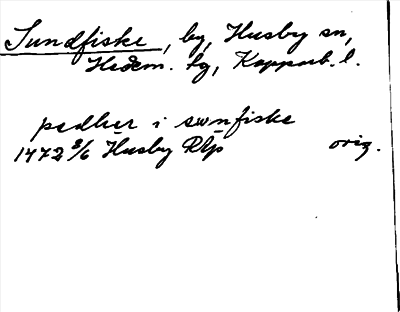 Sundfiske, by, Husby sn,
Hedem. tg, Kopparb. l.
pedher i swnfiske
1472 8/6 Husby Rlp orig.